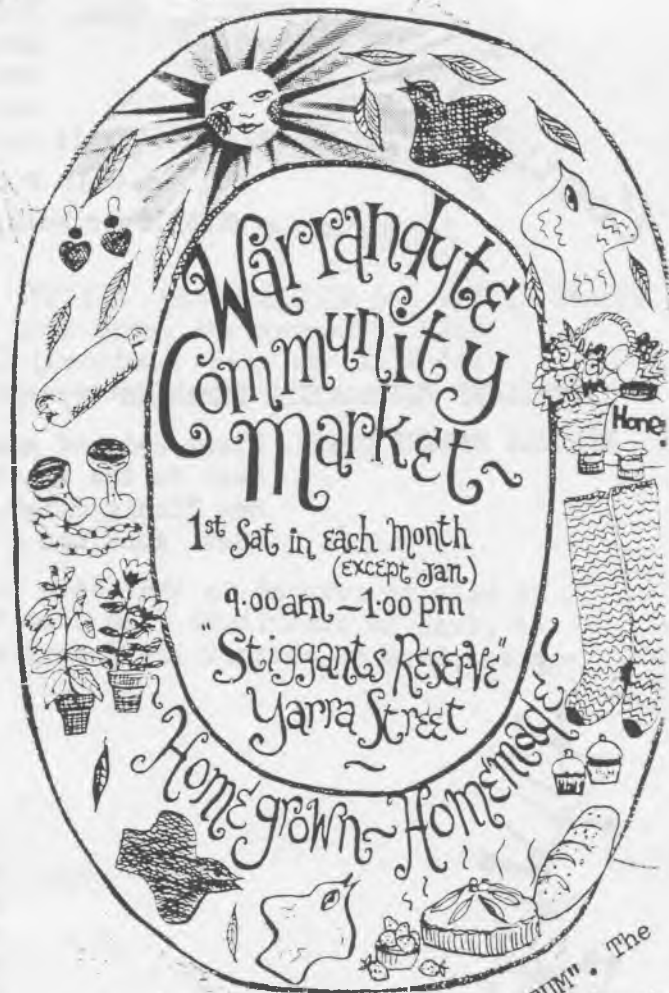 Warrandyte
Community
Market~
1st Sat in each Month
(except Jan)
9.00am — 1.00 pm
"Stiggants Reserve"
Yarra Street
~
Homegrown~Homemade
Hone
The